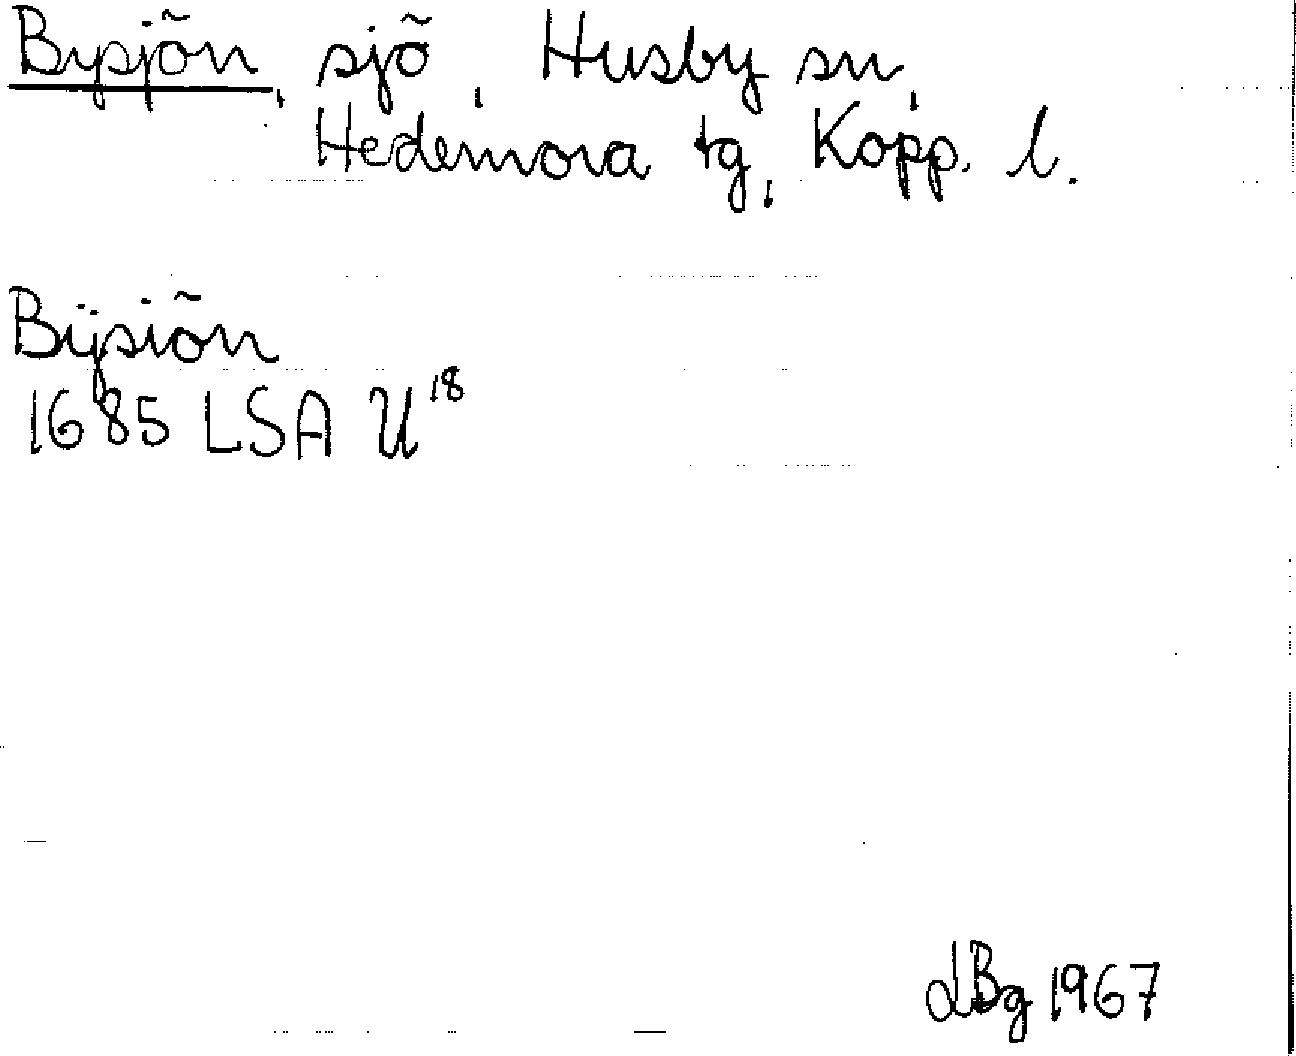 Bysjön, sjö, Husby sn,
Hedemora tg, Kopp. l.
Bÿsiön
1685 LSA U 18
LBg 1967